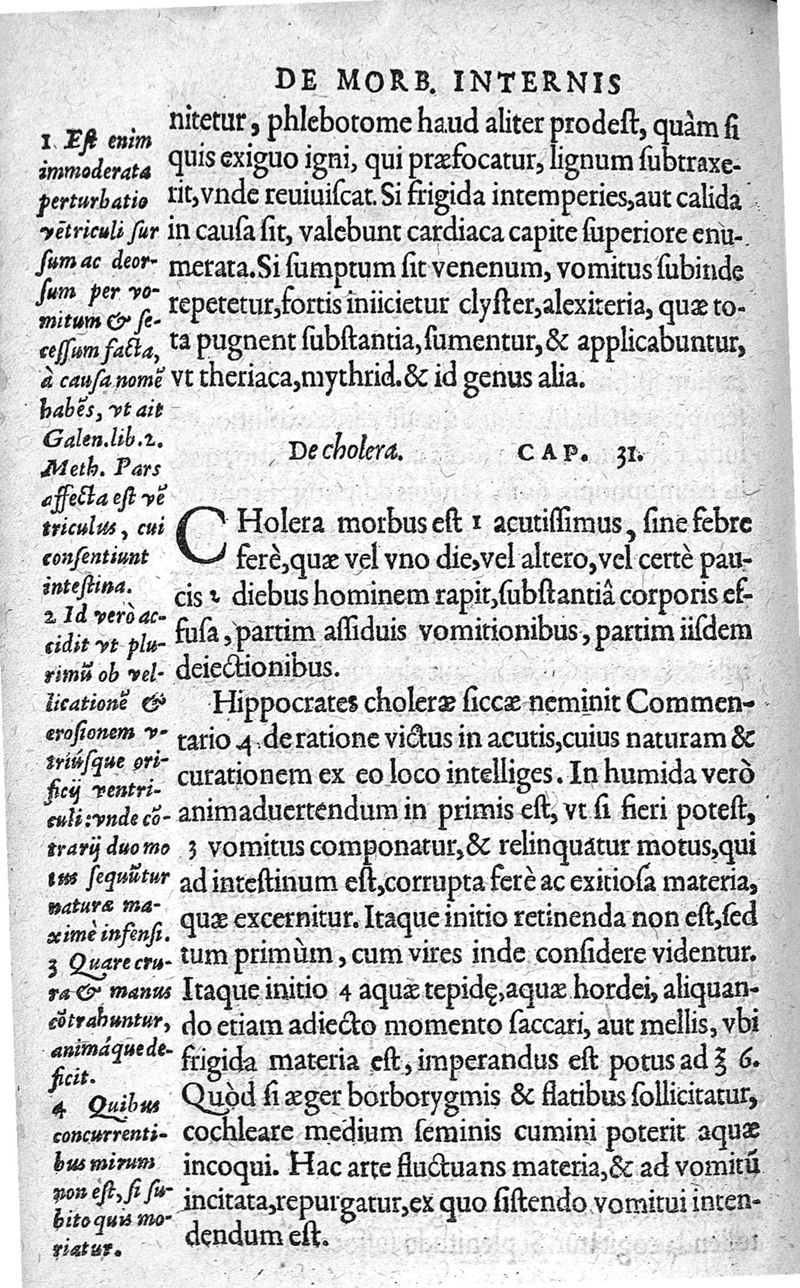 DE MORB. INTERNIS
nitetur, phlebotome haud aliter prodeſt, quàm ſi
quis exiguo igni, qui præfocatur, lignum ſubtraxe-
rit, vnde reuiuiſcat. Si frigida intemperies, aut calida
in cauſa ſit, valebunt cardiaca capite ſuperiore enu-
merata. Si ſumptum ſit venenum, vomitus ſubinde
repetetur, fortis iniicietur clyſter, alexiteria, quæ to-
ta pugnent ſubſtantia, ſumentur, & applicabuntur,
vt theriaca, mythrid. & id genus alia.
De cholera. CAP. 31.
CHolera morbus eſt 1 acutiſſimus, ſine febre
ferè, quæ vel vno die, vel altero, vel certè pau-
cis 2 diebus hominem rapit, ſubſtantiâ corporis ef-
fuſa, partim aſſiduis vomitionibus, partim iiſdem
deiectionibus.
Hippocrates choleræ ſiccæ neminit Commen-
tario 4. de ratione victus in acutis, cuius naturam &
curationem ex eo loco intelliges. In humida verò
animaduertendum in primis eſt, vt ſi fieri poteſt,
3 vomitus componatur, & relinquatur motus, qui
ad inteſtinum eſt, corrupta ferè ac exitioſa materia,
quæ excernitur. Itaque initio retinenda non eſt, ſed
tum primùm, cum vires inde conſidere videntur.
Itaque initio 4 aquæ tepidę, aquæ hordei, aliquan-
do etiam adiecto momento ſaccari, aut mellis, vbi
frigida materia eſt, imperandus eſt potus ad ℥ 6.
Quòd ſi æger borborygmis & flatibus ſollicitatur,
cochleare medium ſeminis cumini poterit aquæ
incoqui. Hac arte fluctuans materia, & ad vomitū
incitata, repurgatur, ex quo ſiſtendo vomitui inten-
dendum eſt.
1 Eſt enim
immoderata
perturbatio
vētriculi ſur
ſum ac deor-
ſum per vo-
mitum & ſe-
ceſſum facta,
à cauſa nomē
habēs, vt ait
Galen. lib. 2.
Meth. Pars
affecta eſt vē
triculus, cui
conſentiunt
inteſtina.
2 Id verò ac-
cidit vt plu-
rimū ob vel-
licationē &
eroſionem v-
triúſque ori-
ficij ventri-
culi: vnde cō-
trarij duo mo
tus ſequūtur
naturæ ma-
ximè infenſi.
3 Quare cru-
ra & manus
cōtrahuntur,
animáque de-
ficit.
4 Quibus
concurrenti-
bus mirum
non eſt, ſi ſu-
bito quis mo-
riatur.